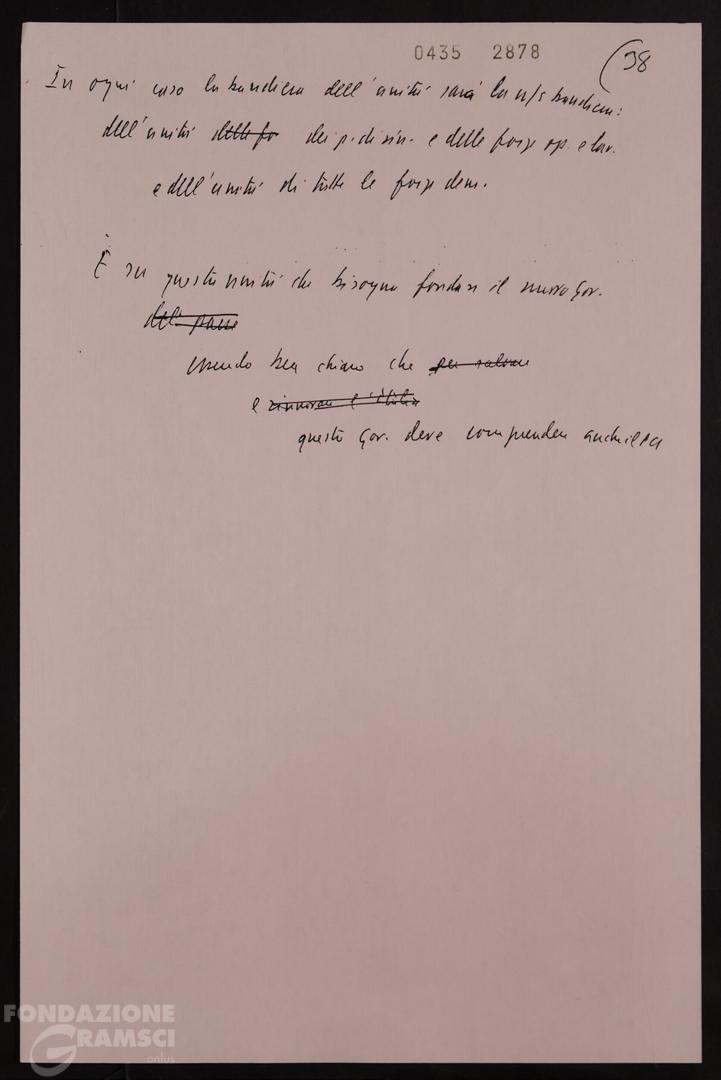 0435 2878
(38
In ogni caso la bandiera dell'unità sarà la n/s bandiera:
dell'unità delle fo dei p. di sin. e delle forze op. e lav.
e dell'unità di tutte le forze dem.
È su questa unità che bisogna fondare il nuovo Gov.
del paese
essendo ben chiaro che per salvare
e rinnovare l'Italia
questo Gov. deve comprendere anche il PCI
FONDAZIONE
GRAMSCI
onlus